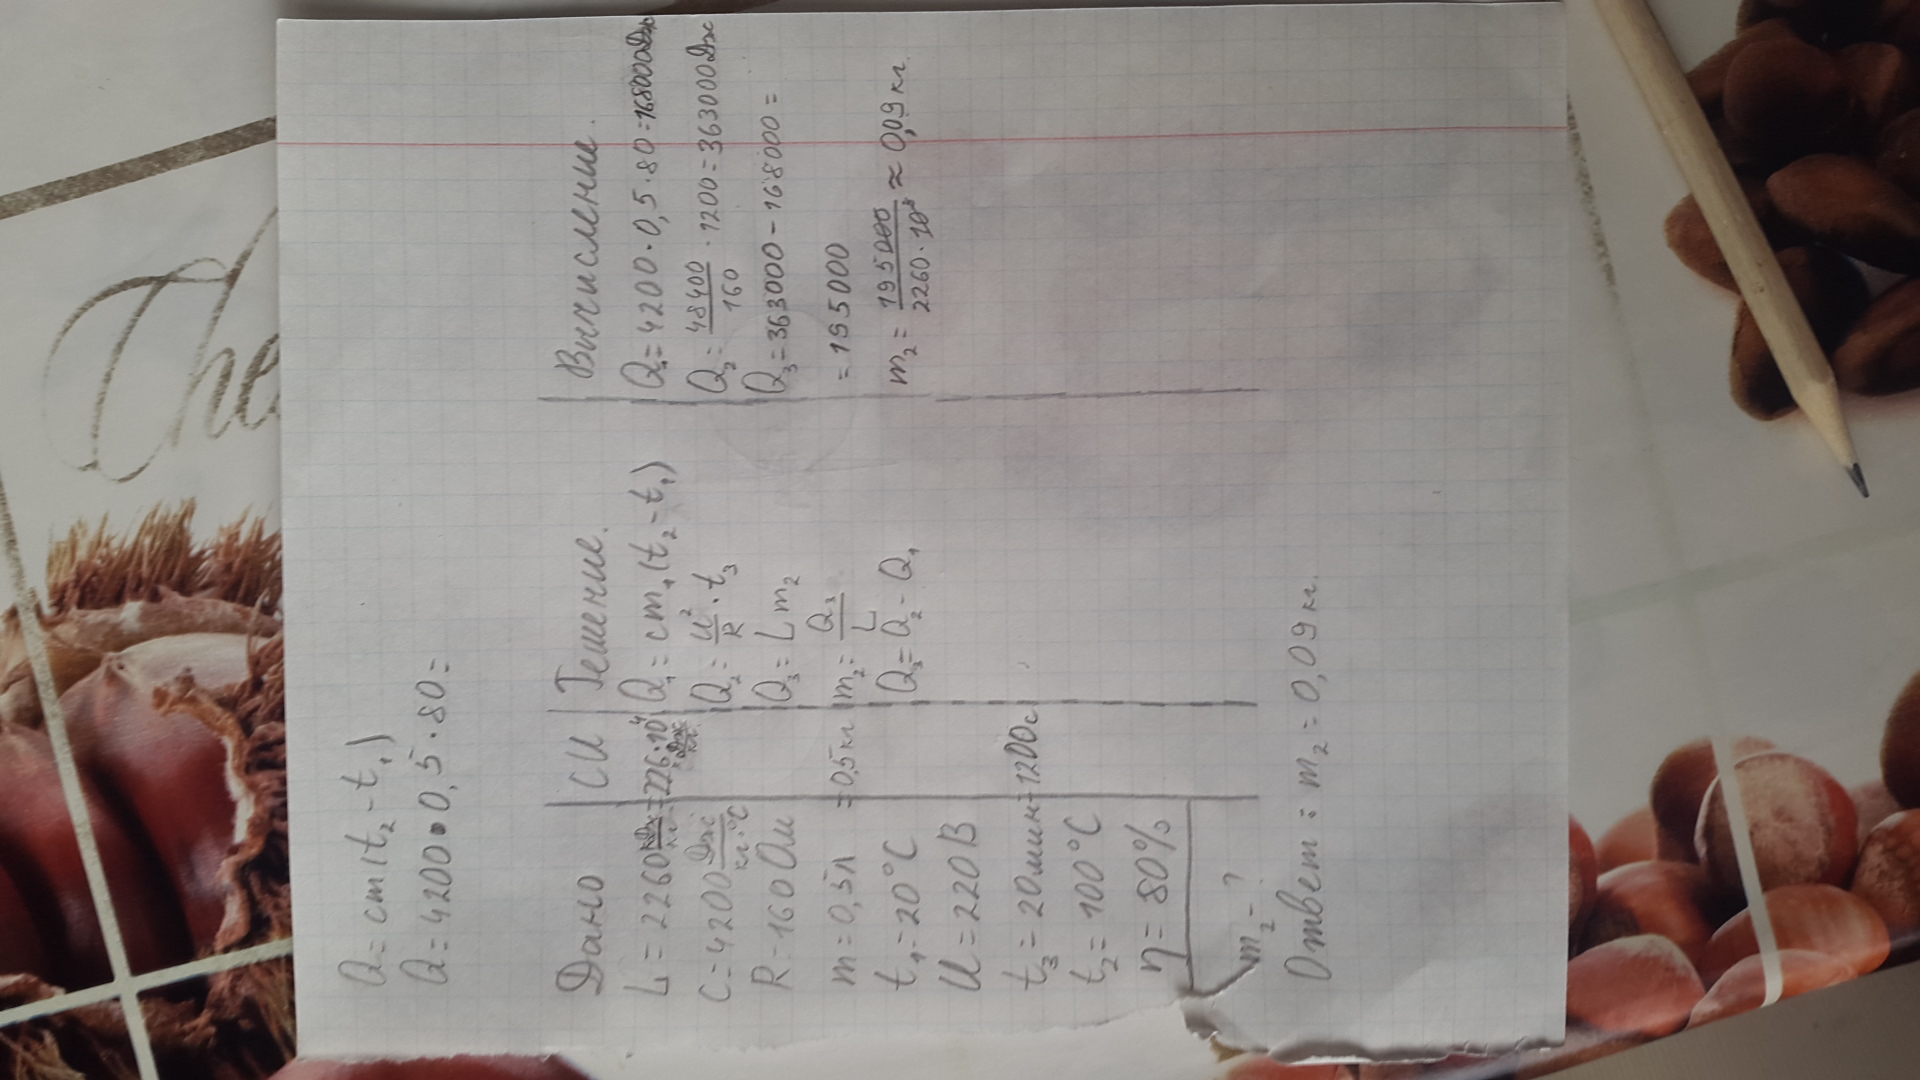 Q = cm(t₂ - t₁)
Q = 4200 · 0,5 · 80 =
Дано
L = 2260 Дж/кг
C = 4200 Дж/кг·°C
R = 160 Ом
m = 0,5л
t₁ = 20°C
U = 220 В
t₃ = 20мин
t₂ = 100°C
η = 80%
m₂ - ?
СИ
= 226·10⁴ Дж/кг
= 0,5 кг
= 1200с
Решение.
Q₁ = cm₁(t₂ - t₁)
Q₂ = U²/R · t₃
Q₃ = L m₂
m₂ = Q₃/L
Q₃ = Q₂ - Q₁
Вычисление.
Q₁ = 4200 · 0,5 · 80 = 168000Дж
Q₂ = 48400/160 · 1200 = 363000Дж
Q₃ = 363000 - 168000 =
= 195000
m₂ = 195000/2260·10³ ≈ 0,09 кг.
Ответ : m₂ = 0,09 кг.
The